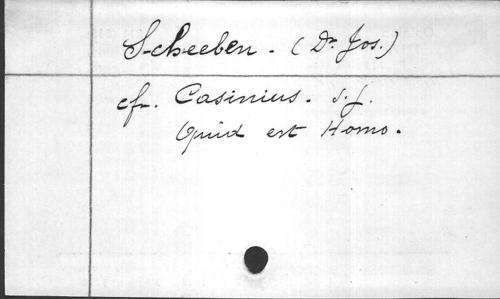 Scheeben. (Dr. Jos.)
cfr. Casinius. S. J.
Quid est Homo.